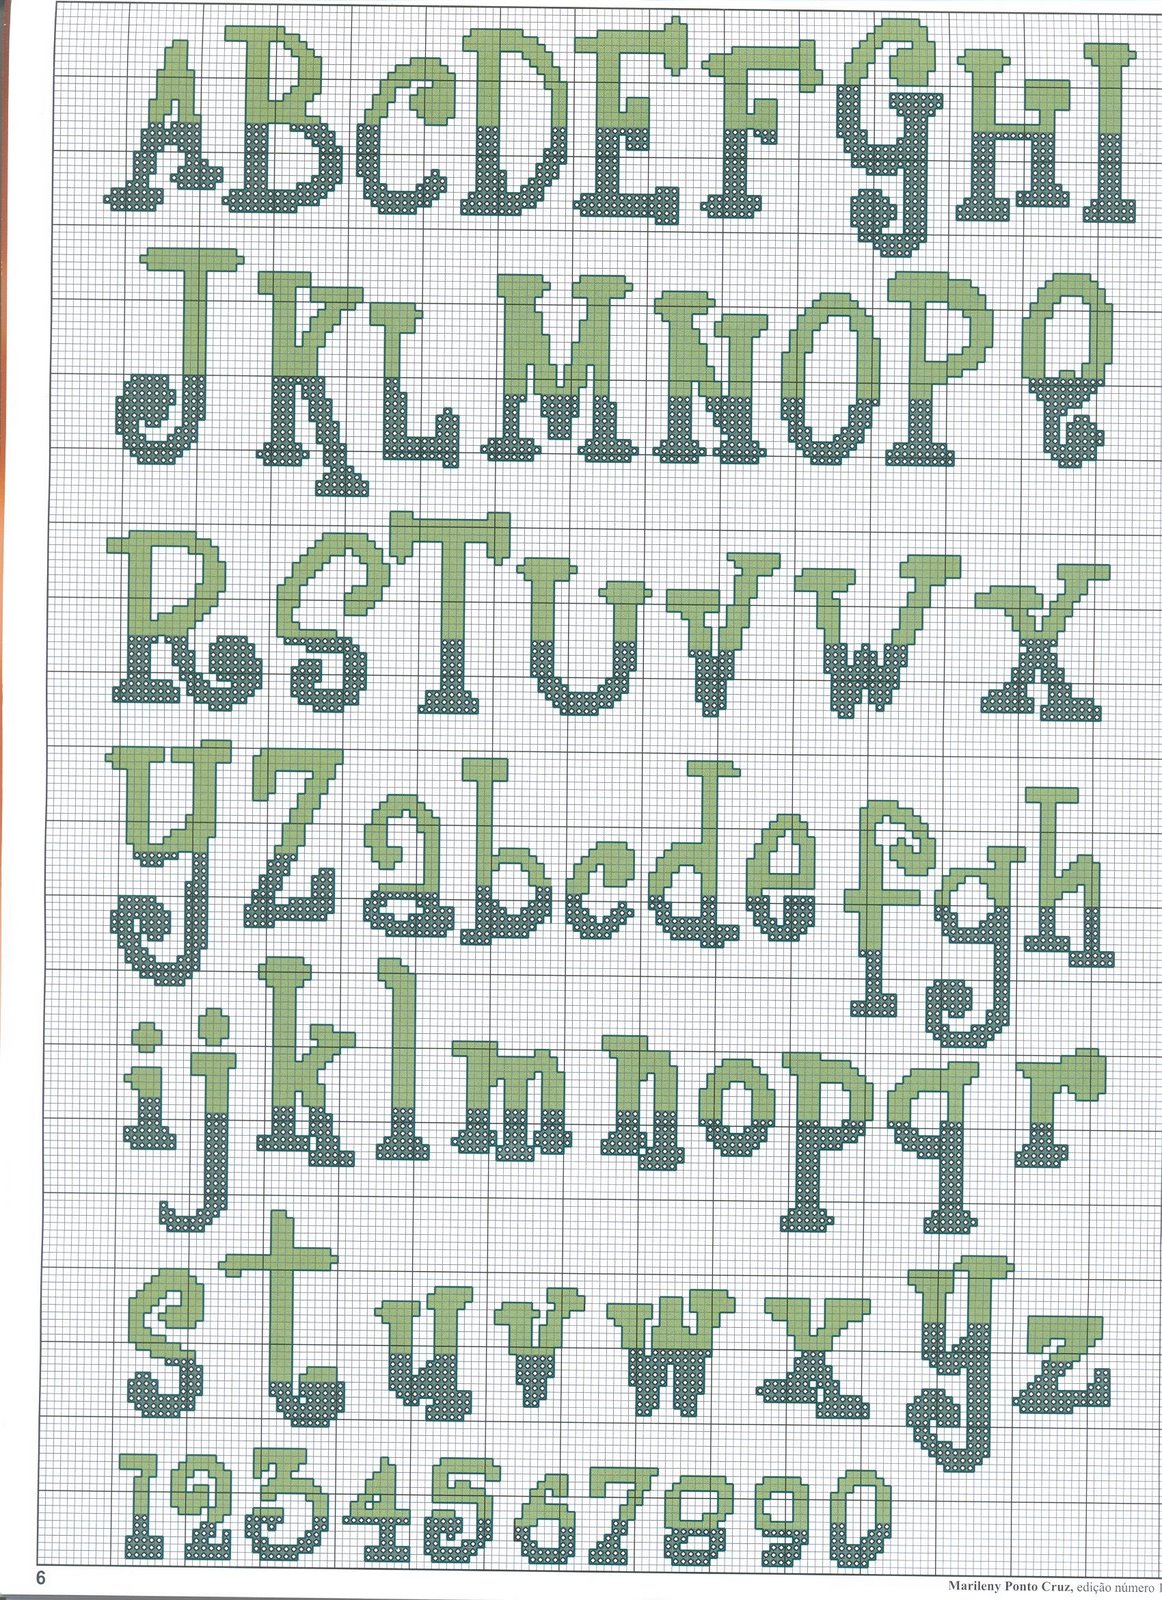 ABCDEFGHI
JKLMNOPQ
RSTUVWX
YZabcdefgh
ijklmnopqr
stuvwxyz
1234567890
6
Marileny Ponto Cruz, edição número 1